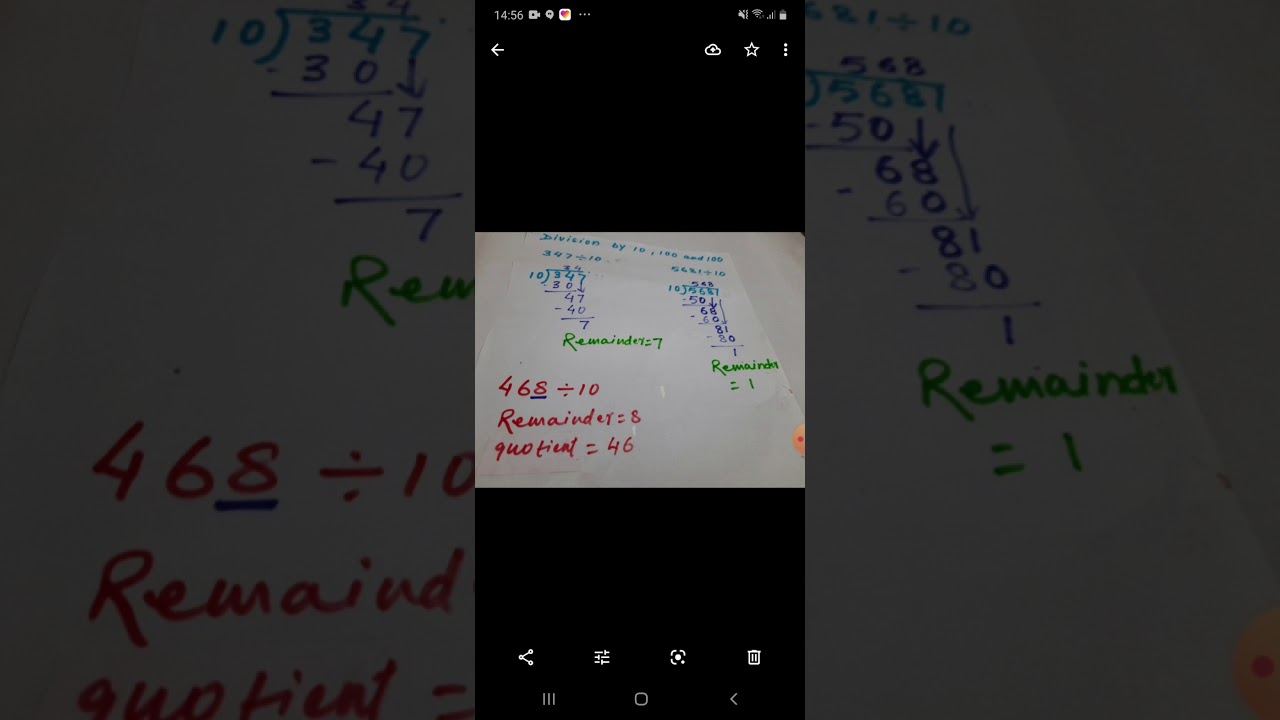 14:56
Division by 10, 100 and 100
347÷10
34
10)347
-30
47
-40
7
Remainder=7
5681÷10
568
10)5681
-50
68
-60
81
-80
1
Remainder
= 1
468 ÷10
Remainder=8
quotient = 46